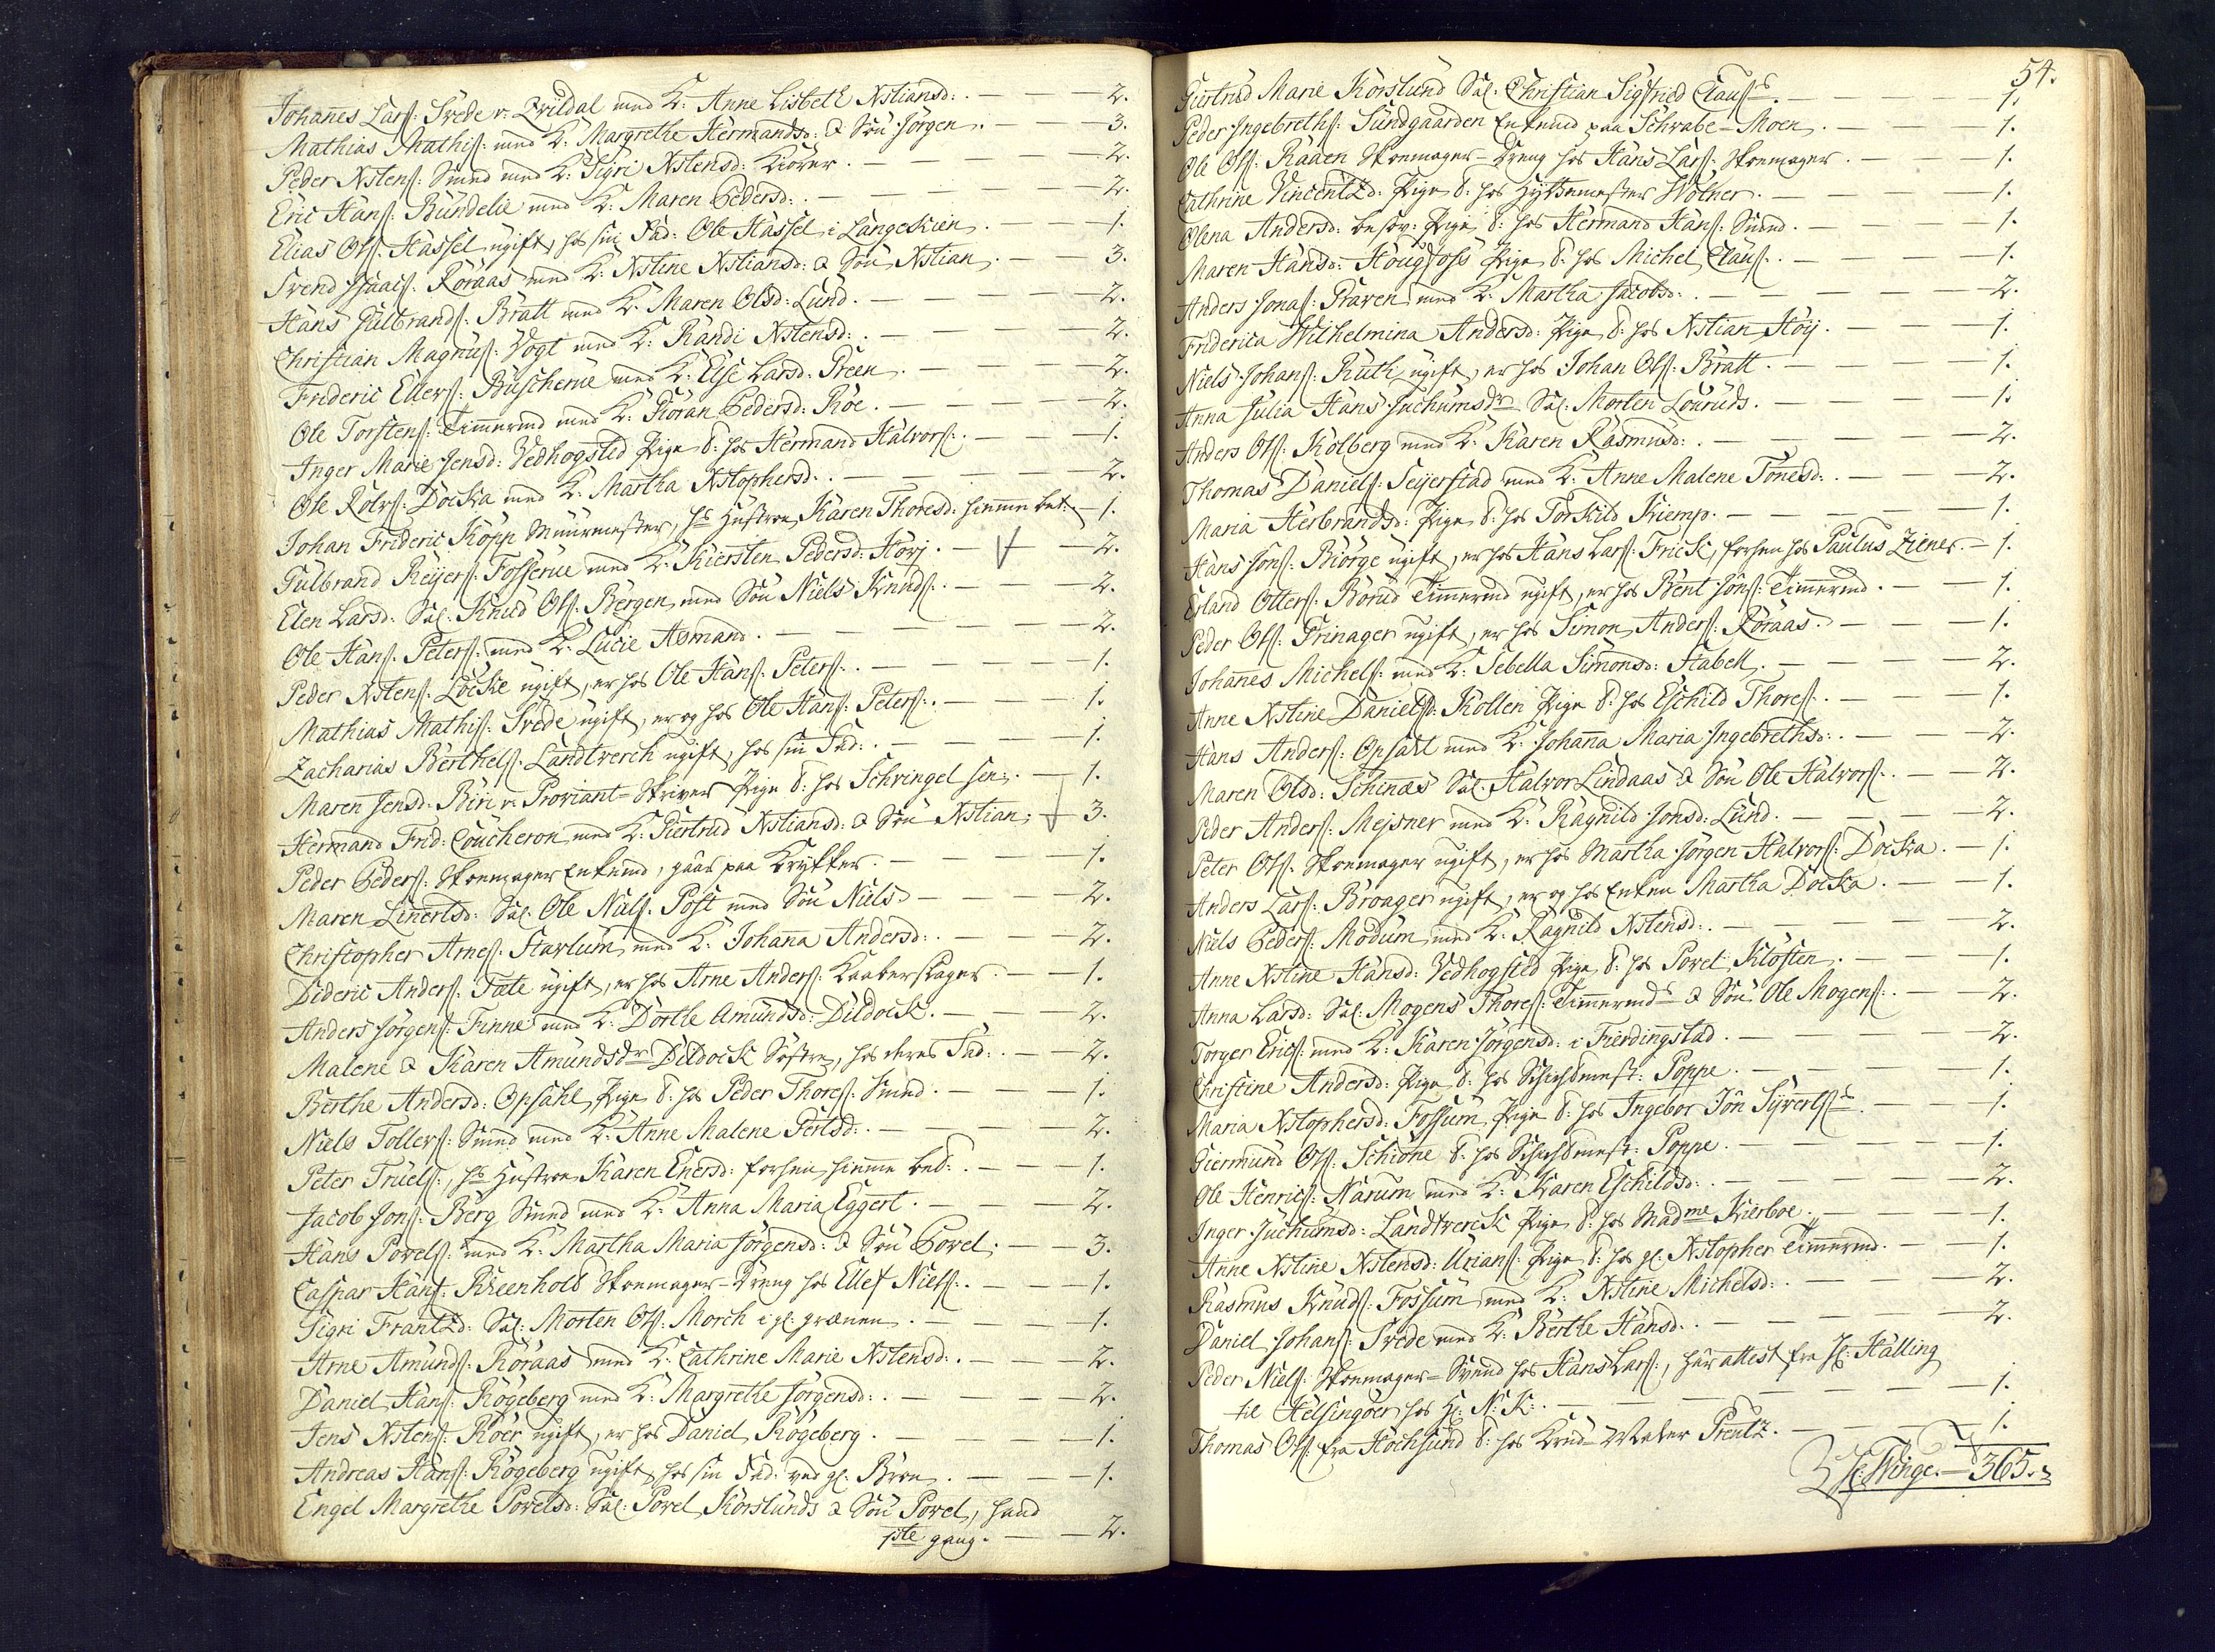 Johanes Lars: Svede v. Qvildal med K: Anne Lisbeth Xstiansd: . — — 2.
Mathias Mathis: med K: Margrethe Hermandsd: & Søn Jørgen . — 3.
Peder Xstens: Smed med K: Sigri Xstensd: Kiorer . — — 2.
Eric Hans: Bündelie med K: Maren Pedersd: . — — 2.
Elias Ols: Hassel ugift, hos sin Fad: Ole Hassel i Langeskien . — 1.
Svend Isaacs: Röraas med K: Xstine Xstiansd: & Søn Xstian . — 3.
Hans Gülbrands: Bratt med K: Maren Olsd: Lund . — — 2.
Christian Magnus: Vogt med K: Randi Xstensd: . — — 2.
Frideric Ellers: Buscherue med K: Else Larsd: Preen . — — 2.
Ole Torstens: Timermd med K: Giöran Pedersd: Röe . — — 2.
Inger Marie Jensd: Vedhogsted Pige t: hos Hermand Halvors: . — 1.
Ole Rolvs: Docka med K: Martha Xstophersd: . — — 2.
Johan Frideric Köpp Muurmester, hs Hustroe Karen Thoresd: hieme bet: 1.
Gulbrand Reijers: Fosserue med K: Kiersten Pedersd: Horj . — 2.
Elen Larsd: Sal: Knud Ols: Bergen med Søn Niels Knuds: . — 2.
Ole Hans: Peters: med K: Lucie Asmand . — — 2.
Peder Xstens: Löcke ugift, er hos Ole Hans: Peters: . — — 1.
Mathias Mathis: Svede ugift, er og hos Ole Hans: Peters: . — 1.
Zacharias Berthels: Landtverch ugift, hos sin Fad: . — — 1.
Maren Jensd: Biri v. Proviant-Skriver Pige t: hos Schringel sen: . — 1.
Hermand Frid: Coucheron med K: Giertrud Xstiansd: & Søn Xstian . 3.
Peder Peders: Skoemager Enkemd, gaar paa Krykker . — — 1.
Maren Linertsd: Sal: Ole Niels: Post med Søn Niels . — — 2.
Christopher Arnes: Starlum med K: Johanna Andersd: . — — 2.
Dideric Anders: Tate ugift, er hos Arne Anders: Kaaberslager . — 1.
Anders Jörgens: Finne med K: Dorthe Amundsd: Dildock . — — 2.
Malene & Karen Amundsdr Dildock Søstre, hos deres Fad: . — 2.
Berthe Andersd: Opsahl Pige t: hos Peder Thores: Smed . — 1.
Niels Tollers: Smed med K: Anne Malene Pertsd: . — — 2.
Peter Truels:, hs Hustroe Karen Enersd: forhen hieme bet: . — 1.
Jacob Jons: Berg Smed med K: Anna Maria Eggert . — — 2.
Hans Povels: med K: Martha Maria Jörgensd: & Søn Povel . — 3.
Caspar Hans: Kreenhold Skoemager-Dreng hos Ellef Niels: . — 1.
Sigri Frantzd: Sal: Morten Ols: Morch i gl: grænen . — — 1.
Arne Amunds: Röraas med K: Cathrine Marie Xstensd: . — 2.
Daniel Hans: Rögeberg med K: Margrethe Jörgensd: . — — 2.
Jens Xstens: Röer ugift, er hos Daniel Rögeberg . — — 1.
Andreas Hans: Rögeberg ugift, hos sin Fad: ved gl: Broe . — 1.
Engel Margrethe Povelsd: Sal: Povel Korslunds & Søn Povel, hand
1ste gang . — 2.
54.
Giertrud Marie Korslund Sal: Christian Sigfried Clauss . — 1.
Peder Ingebreths: Sundgaarden Enkemd paa Schrabe-Moen . — 1.
Ole Ols: Raaen Skoemager-Dreng hos Hans Lars: Skoemager . — 1.
Cathrine Vincentzd: Pige t: hos Hyttemester Wolner . — 1.
Olena Andersd: besov: Pige t: hos Hermand Hans: Smed . — 1.
Maren Hansd: Hougfoss Pige t: hos Michel Claus: . — 1.
Anders Jonas: Praven med K: Martha Jacobsd: . — — 2.
Friderica Wilhelmina Andersd: Pige t: hos Xstian Höij . — 1.
Niels Johans: Ruth ugift, er hos Johan Ols: Bratt . — — 1.
Anna Julia Hans Juchumsdr Sal: Morten Louruds . — — 1.
Anders Ols: Kolberg med K: Karen Rasmusd: . — — 2.
Thomas Daniels: Seijerstad med K: Anne Malene Tönesd: . — 2.
Maria Herbrandsd: Pige t: hos Torkild Kiemp . — — 1.
Hans Jons: Biörge ugift, er hos Hans Lars: Frick, forhen hos Paulus Ziener . — 1.
Erland Otters: Borud Timermd ugift, er hos Bent Jöns: Timermd . — 1.
Peder Ols: Prinager ugift, er hos Simon Anders: Röraas . — 1.
Johanes Michels: med K: Sebella Simonsd: Stabell . — — 2.
Anne Xstine Danielsd: Kollen Pige t: hos Eschild Thores: . — 1.
Hans Anders: Opsahl med K: Johanna Maria Ingebrethsd: . — 2.
Maren Olsd: Schenæs Sal: Halvor Lindaas & Søn Ole Halvors: . — 2.
Peder Anders: Mejsner med K: Ragnild Jonsd: Lund . — — 2.
Peter Ols: Skoemager ugift, er hos Martha Jörgen Halvors: Docka . — 1.
Anders Lars: Broager ugift, er og hos Enken Martha Docka . — 1.
Niels Peders: Modum med K: Ragnild Xstensd: . — — 2.
Anne Xstine Hansd: Vedhogsted Pige t: hos Povel Klösten . — 1.
Anna Larsd: Sal: Mogens Thores: Timermds & Søn Ole Mogens: . — 2.
Torger Erics: med K: Karen Jörgensd: i Fierdingstad . — 2.
Christine Andersd: Pige t: hos Schichtmest: Poppe . — — 1.
Maria Xstophersd: Fossum Pige t: hos Ingebor Jön Syvertss . — 1.
Giermund Ols: Schiöne t: hos Schichtmest: Poppe . — — 1.
Ole Henrics: Narum med K: Karen Eschildsd: . — — 2.
Inger Juchumsd: Landtverck Pige t: hos Madme Kierboe . — 1.
Anne Xstine Xstensd: Urians: Pige t: hos gl: Xstopher Timermd . — 1.
Rasmus Knuds: Fossum med K: Xstine Michelsd: . — — 2.
Daniel Johans: Svede med K: Berthe Hansd: . — — 2.
Peder Niels: Skoemager-Svend hos Hans Lars:, har attest fra Hr: Halling
til Helsingöer hos Hr: N: K: . — — 1.
Thomas Ols: fra Hochsund t: hos Krud-Mester Prentz . — — 1.
365.